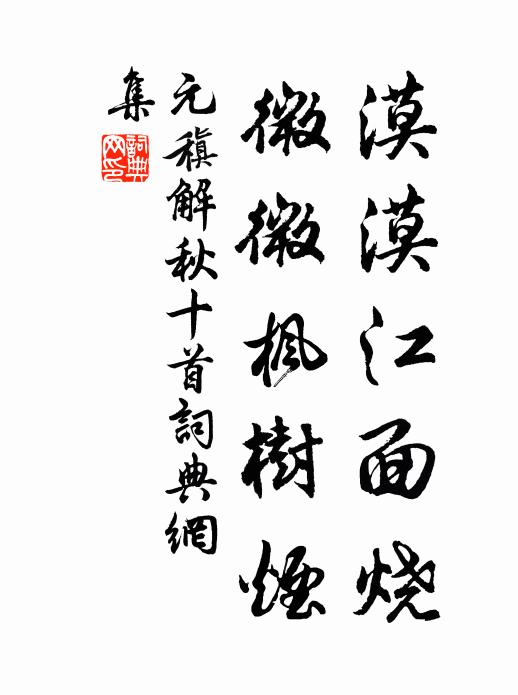 漠漠江面烧
微微枫樹煙
元稹解秋十首詞典網
集
詞典网印